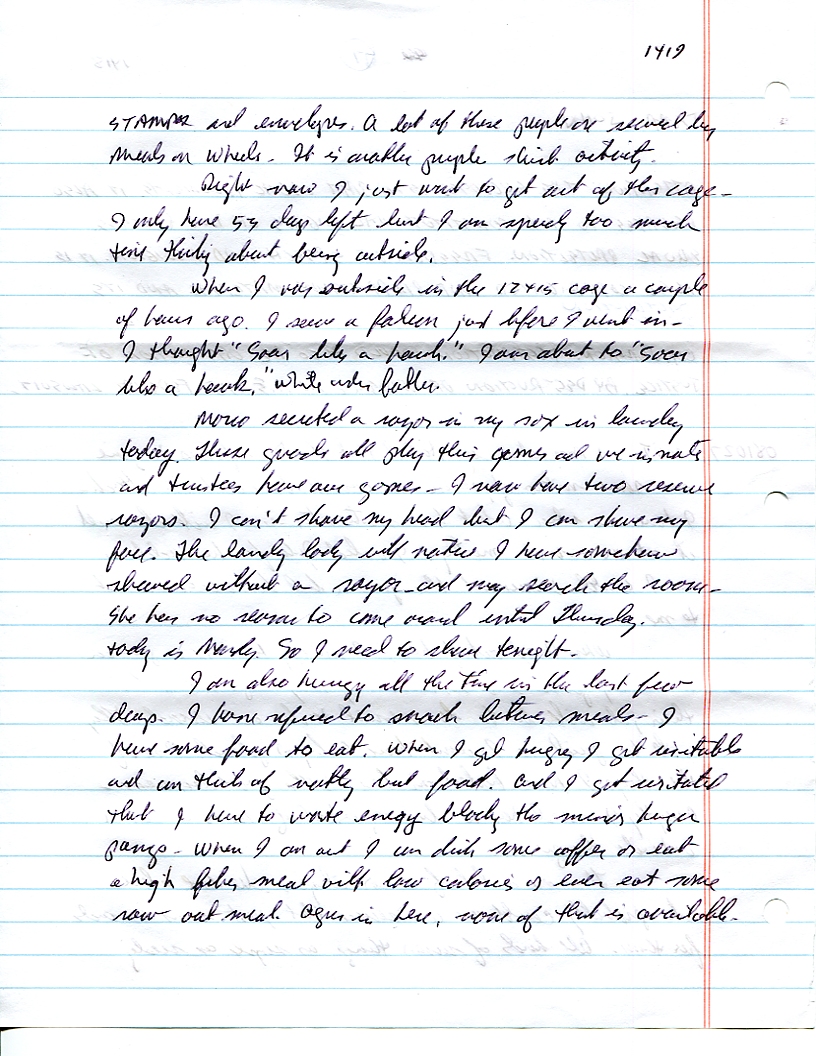 1419
STAMPS and envelopes. A lot of these people are served by
meals on wheels. It is another people sick activity.
Right now I just want to get out of this cage -
I only have 53 days left but I am spendg too much
time thinkg about being outside.
When I was outside in the 12x15 cage a couple
of hours ago. I saw a falcon just before I went in -
I thought "Soar like a hawk." I am about to "Soar
like a hawk,"
secreted a razor in my sox in laundry
today. These guards all play this games ad we inmates
and trustees have our games - I now have two reserve
razors. I can't shave my head but I can shave my
face. The laundy lady will notice I have somehow
shaved without a razor and may search the room -
She has no reason to come around until Thursday.
today is Monday. So I need to shave tonight.
I am also hungry all the time in the last few
days. I have refused to snack between meals - I
have some food to eat. When I get hungry I get irritable
ad can think of nothg but food. And I get irritated
that I have to waste energy blockg the hunger
pangs - When I am out I can drink some coffee or eat
a high fiber meal with low calories or even eat some
raw oat meal. in here, none of that is available -